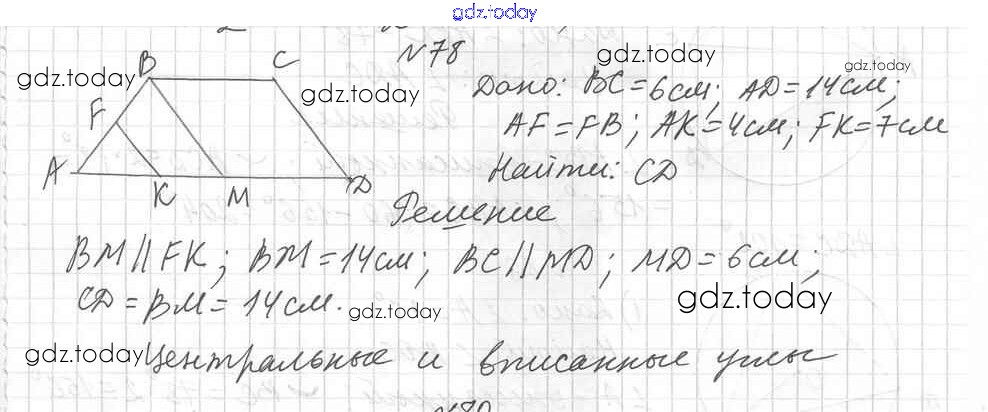 gdz.today
N78
gdz.today
gdz.today
gdz.today
gdz.today
B C
F
A K M D
Дано: BC=6см; AD=14см;
AF=FB; AK=4см; FK=7см
Найти: CD
Решение
BM∥FK; BM=14см; BC∥MD; MD=6см;
CD=BM=14см.
gdz.today
gdz.today
gdz.today
Центральные и вписанные углы